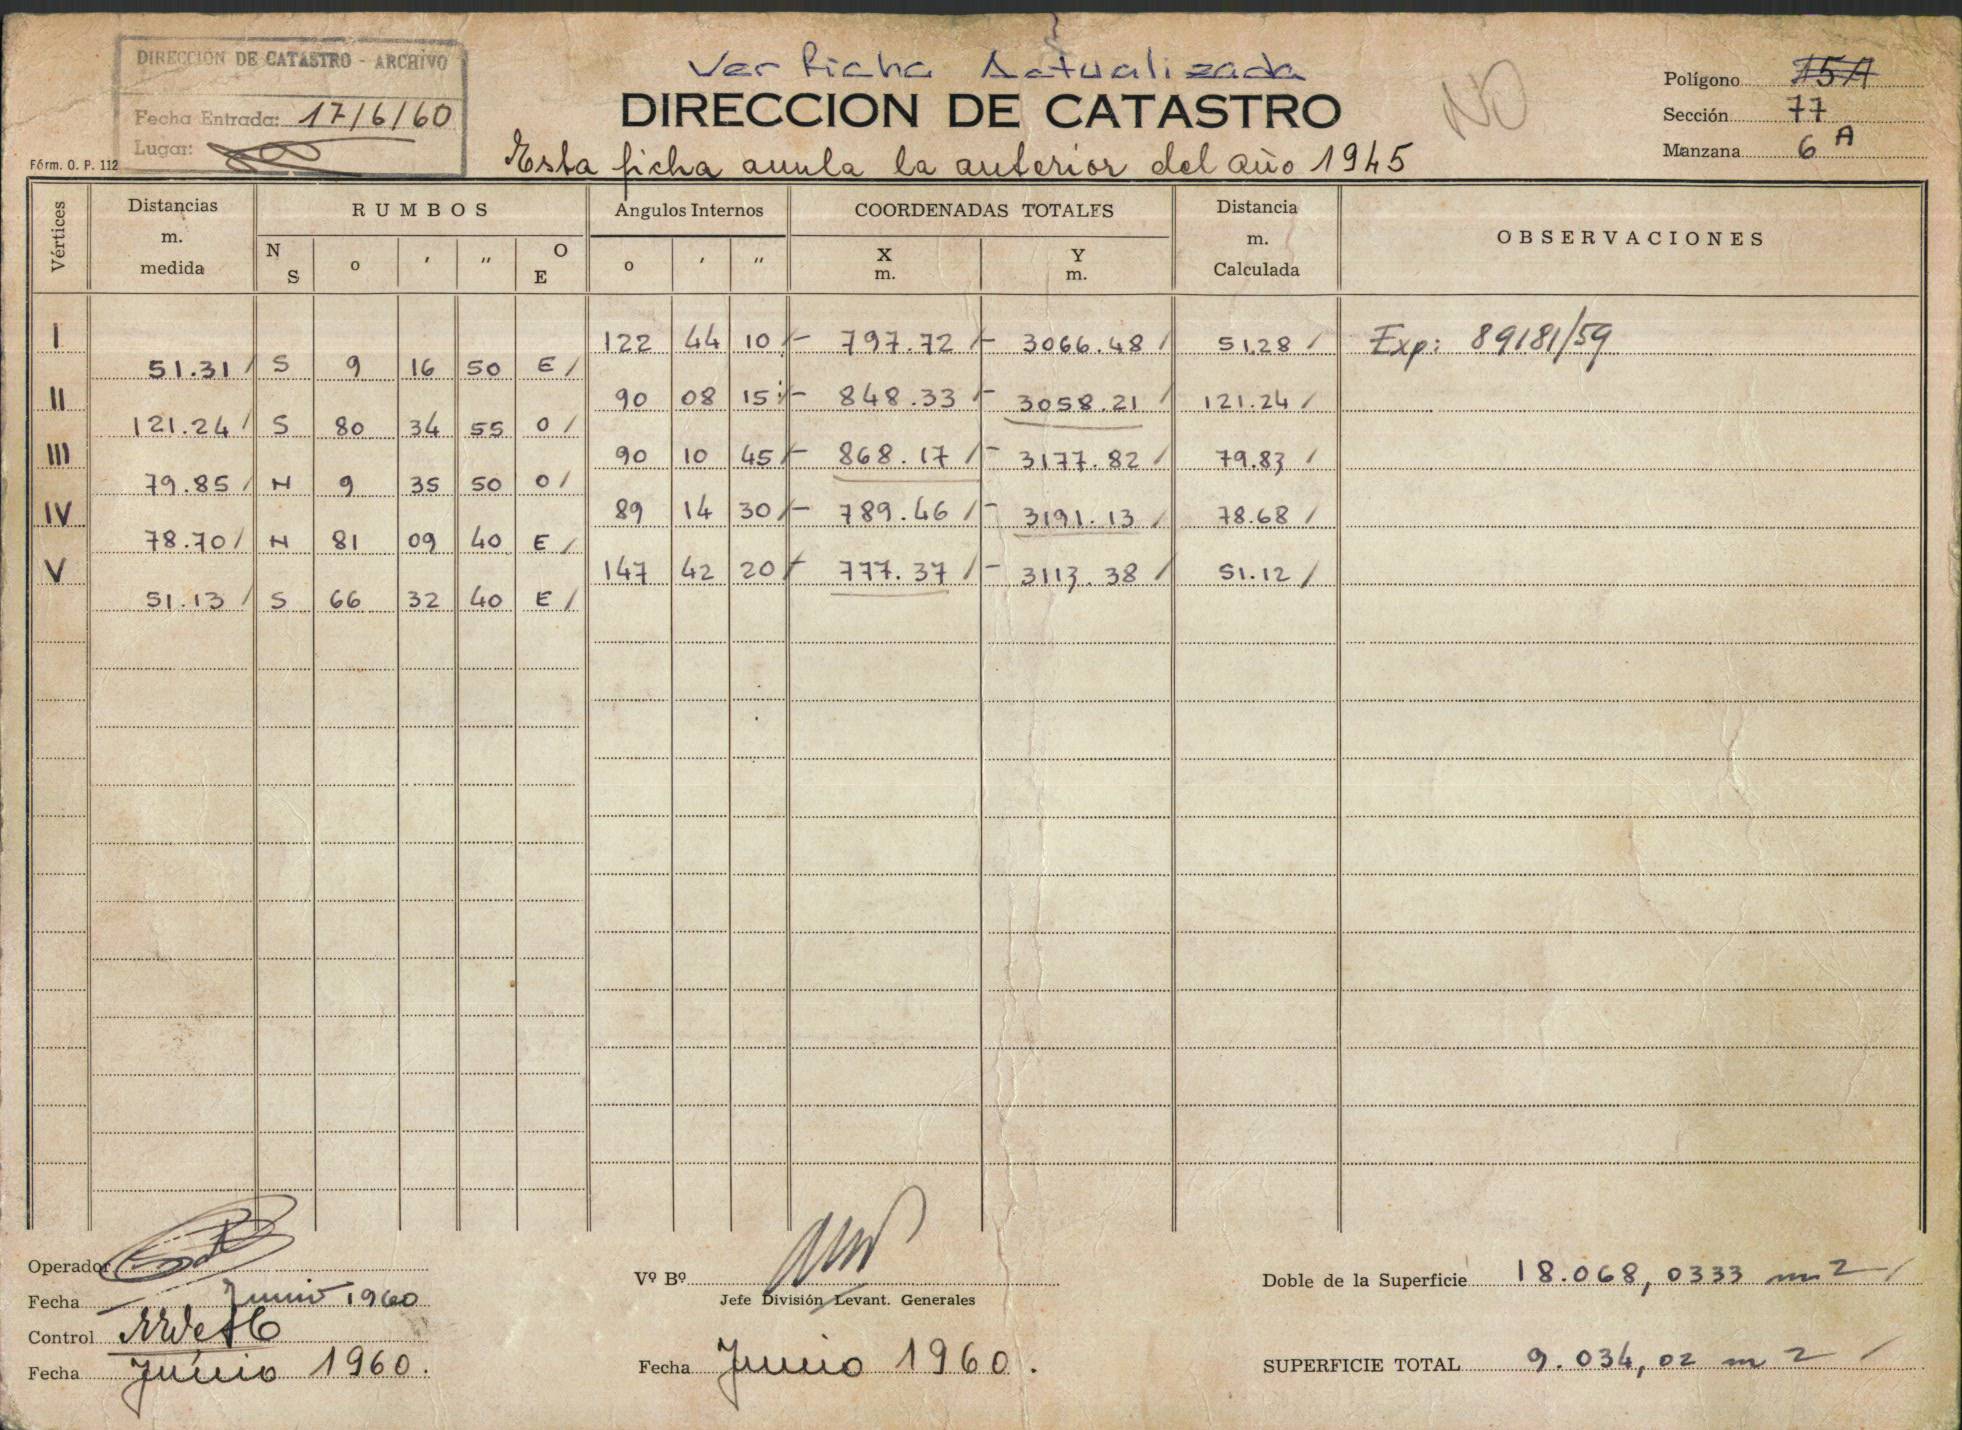 DIRECCION DE CATASTRO - ARCHIVO
Fecha Entrada: 17/6/60
Lugar:
Fórm. O. P. 112
Ver ficha Actualizada
DIRECCION DE CATASTRO
Esta ficha anula la anterior del año 1945
NO
Polígono 15A
Sección 77
Manzana 6 A
Vértices
Distancias m. medida
RUMBOS
N S o ' " O E
Angulos Internos
o ' "
COORDENADAS TOTALES
X m. Y m.
Distancia m. Calculada
OBSERVACIONES
I 122 44 10 - 797.72 - 3066.48 51.28 Exp: 89181/59
51.31 S 9 16 50 E
II 90 08 15 - 848.33 - 3058.21 121.24
121.24 S 80 34 55 O
III 90 10 45 - 868.17 - 3177.82 79.83
79.85 N 9 35 50 O
IV 89 14 30 - 789.46 - 3191.13 78.68
78.70 N 81 09 40 E
V 147 42 20 - 777.37 - 3113.38 51.12
51.13 S 66 32 40 E
Operador
Fecha Junio 1960
Control
Fecha Junio 1960.
Vº Bº
Jefe División Levant. Generales
Fecha Junio 1960.
Doble de la Superficie 18.068,0333 m2
SUPERFICIE TOTAL 9.034,02 m2